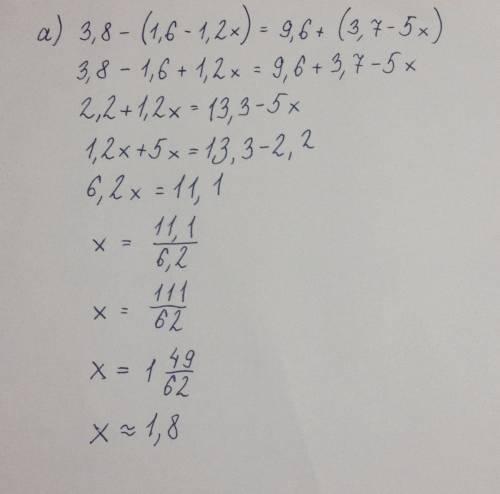 а) 3,8 - (1,6 - 1,2x) = 9,6 + (3,7 - 5x)
3,8 - 1,6 + 1,2x = 9,6 + 3,7 - 5x
2,2 + 1,2x = 13,3 - 5x
1,2x + 5x = 13,3 - 2,2
6,2x = 11,1
x = 11,1/6,2
x = 111/62
x = 1 49/62
x ≈ 1,8